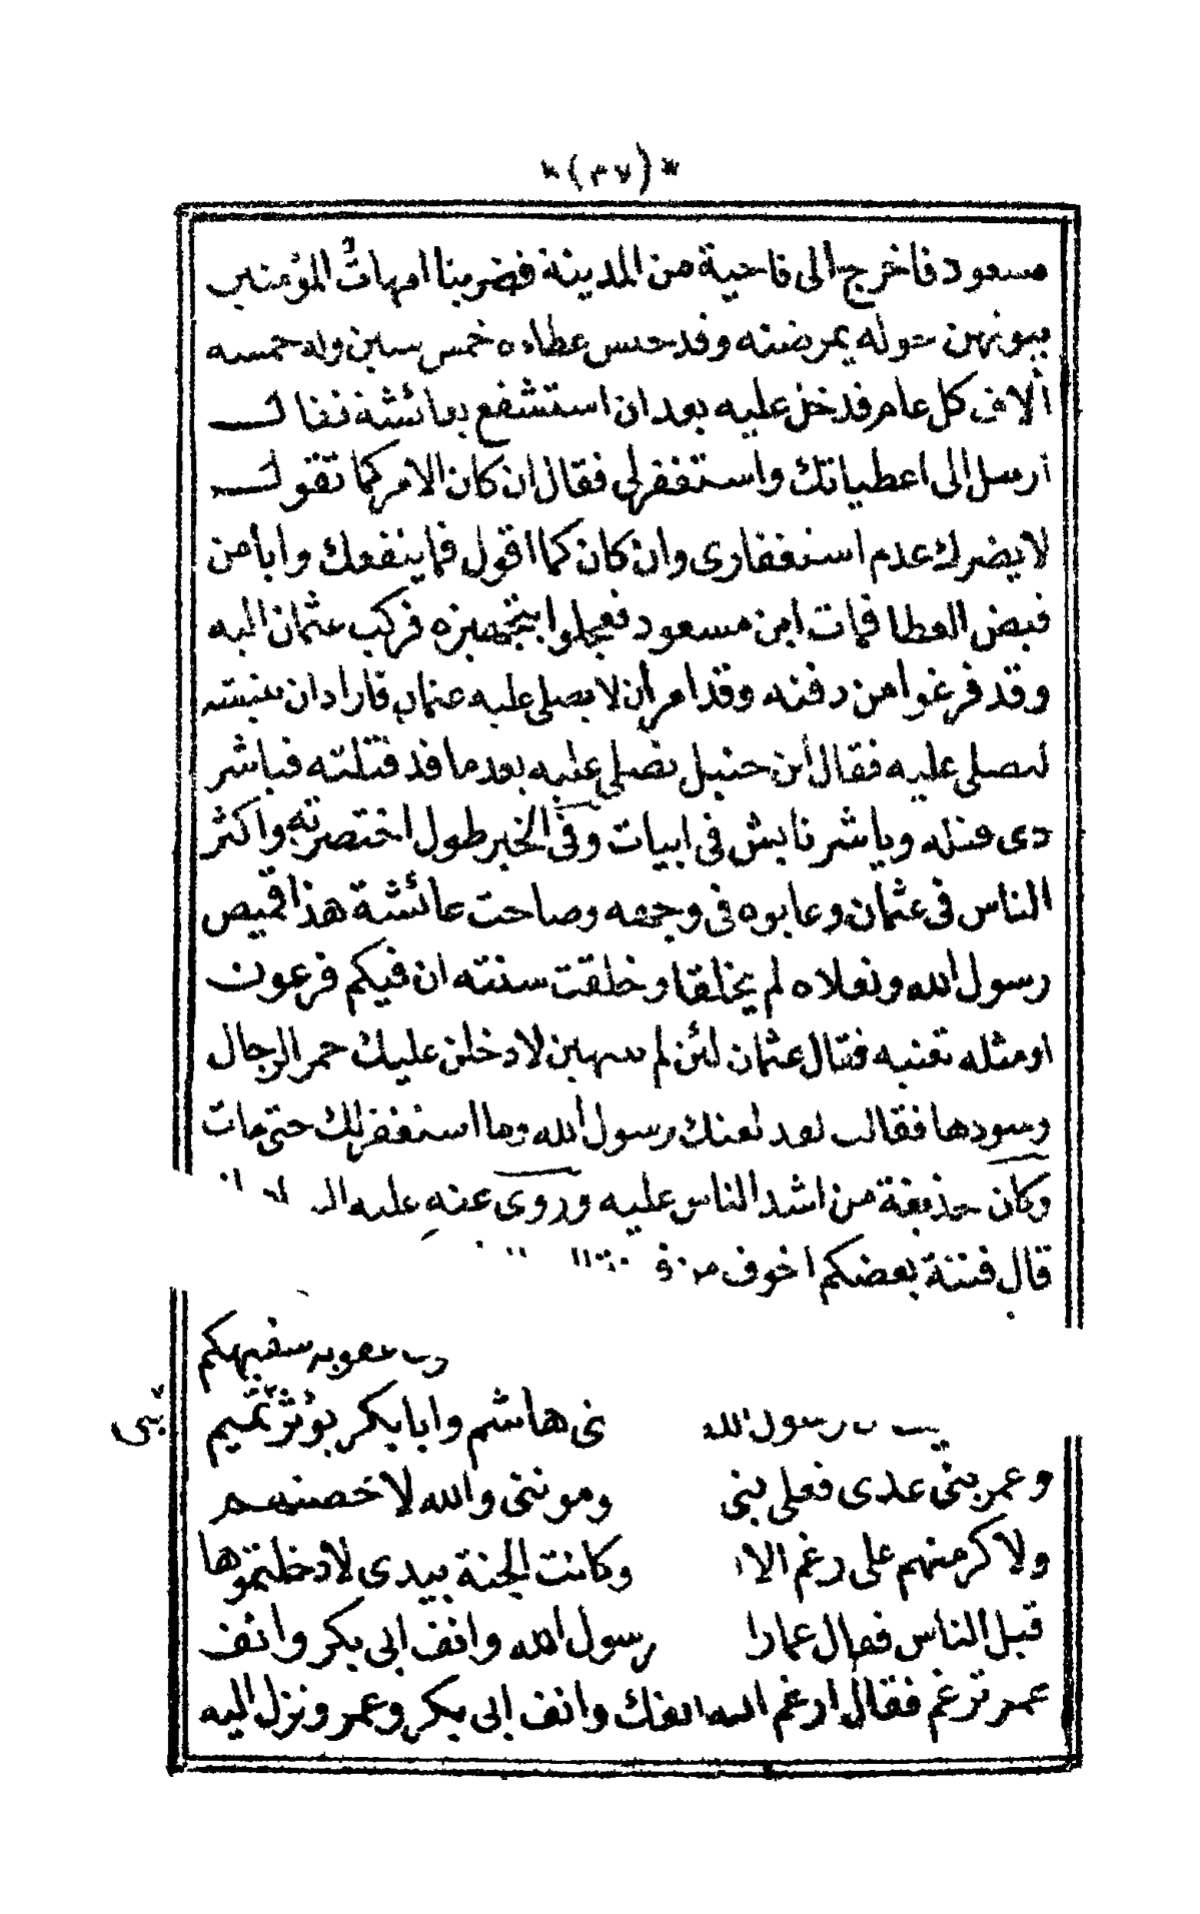 *(٣٧)*
مسعود فاخرج الى ناحية من المدينة فضربنا امهات المؤمنين
بيوتهن حوله يمرضنه وقد حبس عطاءه خمس سنين وله خمسه
آلاف كل عام فدخل عليه بعد ان استشفع بعائشة فقال
ارسل الى اعطياتك واستغفر لي فقال ان كان الامر كما تقول
لا يضرك عدم استغفارى وان كان كما اقول فما ينفعك وابا من
قبض العطا فمات ابن مسعود فعجلوا بتجهيزه فركب عثمان اليه
وقد فرغوا من دفنه وقد امر ان لا يصلى عليه عثمان فاراد ان ينبشه
ليصلى عليه فقال ابن حنبل تصلى عليه بعد ما قد قتلته فباشر
دى قتله وياشر نابش فى ابيات وفى الخبر طول اختصرته واكثر
الناس فى عثمان وعابوه فى وجهه وصاحت عائشة هذا قميص
رسول الله ونعلاه لم يخلقا وخلقت سنته ان فيكم فرعون
او مثله تعنيه فقال عثمان لئن لم تنتهين لادخلن عليك حمر الرجال
وسودها فقالت لعد لعنك رسول الله وما استغفر لك حتى مات
وكان حذيفة من اشد الناس عليه وروى عنه عليه
قال فتنة بعضكم اخوف من
سفيهكم
رسول الله نى هاشم وابا بكر يؤثر تميم
بنى
وعمر بنى عدى فعلى بنى وموننى والله لاخصنهم
ولاكرمنهم على رغم وكانت الجنة بيدى لادخلتموها
قبل الناس فقال عمارا رسول الله وانف ابى بكر وانف
عمر ترغم فقال ارغم الله انفك وانف ابى بكر وعمر ونزل اليه